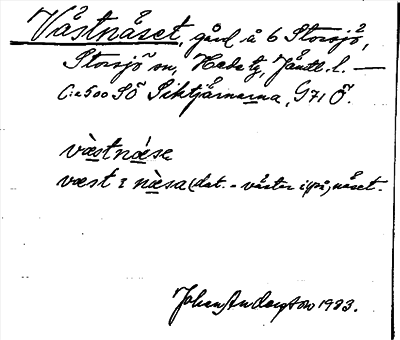 Västnäset, gård å 6 Storsjö,
Storsjö sn, Hede tg, Jämtl. l. —
C:a 500 SÖ Siktjärnarna, 971 Ö.
væstnæse
væst i næsa (dat. - väster i (på) näset.
Johan Anderson 1983.